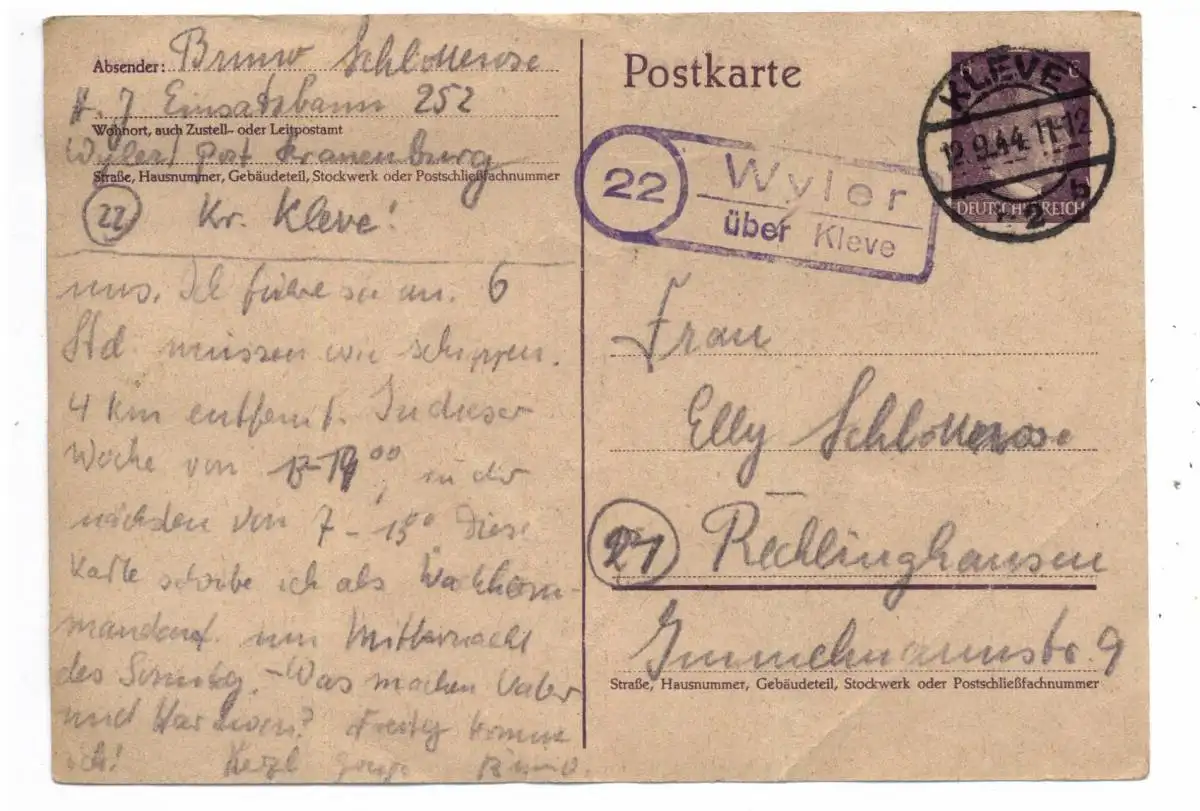 Absender: Bruno Schlotterose
H. J Einsatzbann 252
Wohnort, auch Zustell- oder Leitpostamt
Wyler/ Post Kranenburg
Straße, Hausnummer, Gebäudeteil, Stockwerk oder Postschließfachnummer
22 Kr. Kleve!
uns. Ich führe sie an. 6
Std. müssen wir schippen.
4 Km entfernt. In dieser
Woche von 19⁰⁰, in der
nächsten von 7 - 15⁰⁰ Diese
Karte schreibe ich als Wachkom-
mandant um Mitternacht
des Sonntag. - Was machen Vater
und Freitag komme
ich! Herzl Bruno.
Postkarte
KLEVE
12.9.44.11-12
2 b
6 6
DEUTSCHES REICH
22 Wyler
über Kleve
Frau
Elly Schlotterose
21 Recklinghausen
Immelmannstr 9
Straße, Hausnummer, Gebäudeteil, Stockwerk oder Postschließfachnummer